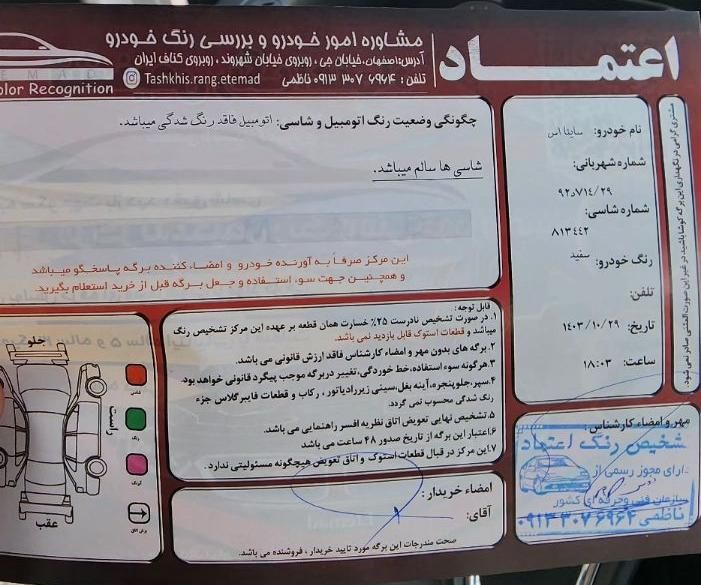 اعتماد
مشاوره امور خودرو و بررسی رنگ خودرو
آدرس:اصفهان، خیابان جی، روبروی خیابان شهروند، روبروی کناف ایران
تلفن : ۶۹۶۴ ۳۰۷ ۰۹۱۳ ناظمی Tashkhis.rang.etemad
olor Recognition
مشتری گرامی در نگهداری این برگه کوشا باشید در غیر این صورت المثنی صادر نمی شود.
نام خودرو: ساینا اس
شماره شهربانی:
۹۲د۷۱۴/۲۹
شماره شاسی:
۸۱۳۴۴۲
رنگ خودرو: سفید
تلفن:
تاریخ: ۱۴۰۳/۱۰/۲۹
ساعت: ۱۸:۰۳
چگونگی وضعیت رنگ اتومبیل و شاسی: اتومبیل فاقد رنگ شدگی میباشد.
شاسی ها سالم میباشد.
این مرکز صرفاً به آورنده خودرو و امضاء کننده برگه پاسخگو میباشد
و همچنین جهت سوء استفاده و جعل برگه قبل از خرید استعلام بگیرید.
قابل توجه:
۱. در صورت تشخیص نادرست ۲۵٪ خسارت همان قطعه بر عهده این مرکز تشخیص رنگ
میباشد و قطعات استوک قابل بازدید نمی باشد.
۲. برگه های بدون مهر و امضاء کارشناس فاقد ارزش قانونی می باشد.
۳. هرگونه سوء استفاده، خط خوردگی، تغییر در برگه موجب پیگرد قانونی خواهد بود.
۴. سپر، جلوپنجره، آینه بغل، سینی زیر رادیاتور ، رکاب و قطعات فایبرگلاس جزء
رنگ شدگی محسوب نمی گردد.
۵. تشخیص نهایی تعویض اتاق نظریه افسر راهنمایی می باشد.
۶. اعتبار این برگه از تاریخ صدور ۴۸ ساعت می باشد
۷. این مرکز در قبال قطعات استوک و اتاق تعویض هیچگونه مسئولیتی ندارد.
امضاء خریدار :
آقای:
صحت مندرجات این برگه مورد تایید خریدار ، فروشنده می باشد.
مهر و امضاء کارشناس :
تشخیص رنگ اعتماد
دارای مجوز رسمی از
سازمان فنی و حرفه ای کشور
ناظمی ۰۹۱۳۳۰۷۶۹۶۴
جلو
راست
عقب
رنگ